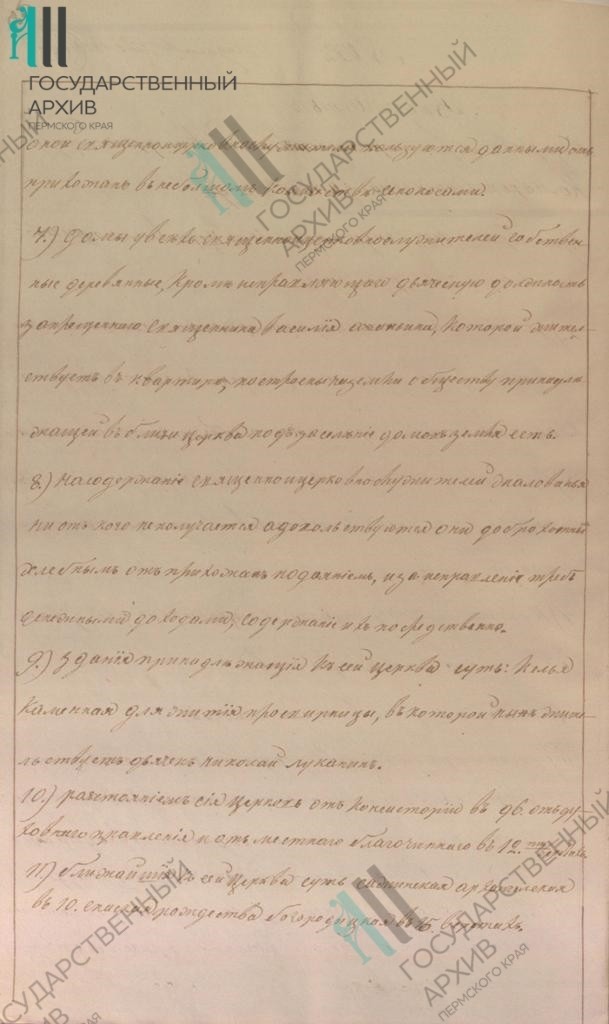 ГОСУДАРСТВЕННЫЙ
АРХИВ
ПЕРМСКОГО КРАЯ
оной священноцерковнослужители пользуются данными отъ
прихожанъ въ небольшомъ количествѣ сенокосами.
7.) Домы у всѣхъ священноцерковнослужителей собствен-
ные деревянные, кромѣ исправляющаго дьяческую должность
запрещеннаго священника Василія, которой жител-
ствуетъ въ квартире, построены на земли обществу принадле-
жащей въ близи церкви подъ заселѣние домовъ земля есть.
8.) На содержаніе священно и церковнослужители жалованья
ни отъ кого не получается а довольствуются они доброхотнымъ
хлебнымъ отъ прихожанъ подаяніемъ, и за исправленіе требъ
денежными доходами, содержаніе ихъ посредственно.
9.) Зданія принадлежащія къ сей церкви суть: Келья
каменная для житія просвирницы, въ которой нынѣ жите-
льствуетъ дьячекъ Николай Луканинъ.
10.) разстояніемъ сія церковь отъ консисторіи въ 96. отъ ду-
ховнаго правленія и отъ местнаго благочиннаго въ 12. верстахъ.
11) Ближайшія къ сей церкви суть архангелская
въ 10. рождества богородицкая въ 15. верстахъ.
ГОСУДАРСТВЕННЫЙ
АРХИВ
ПЕРМСКОГО КРАЯ